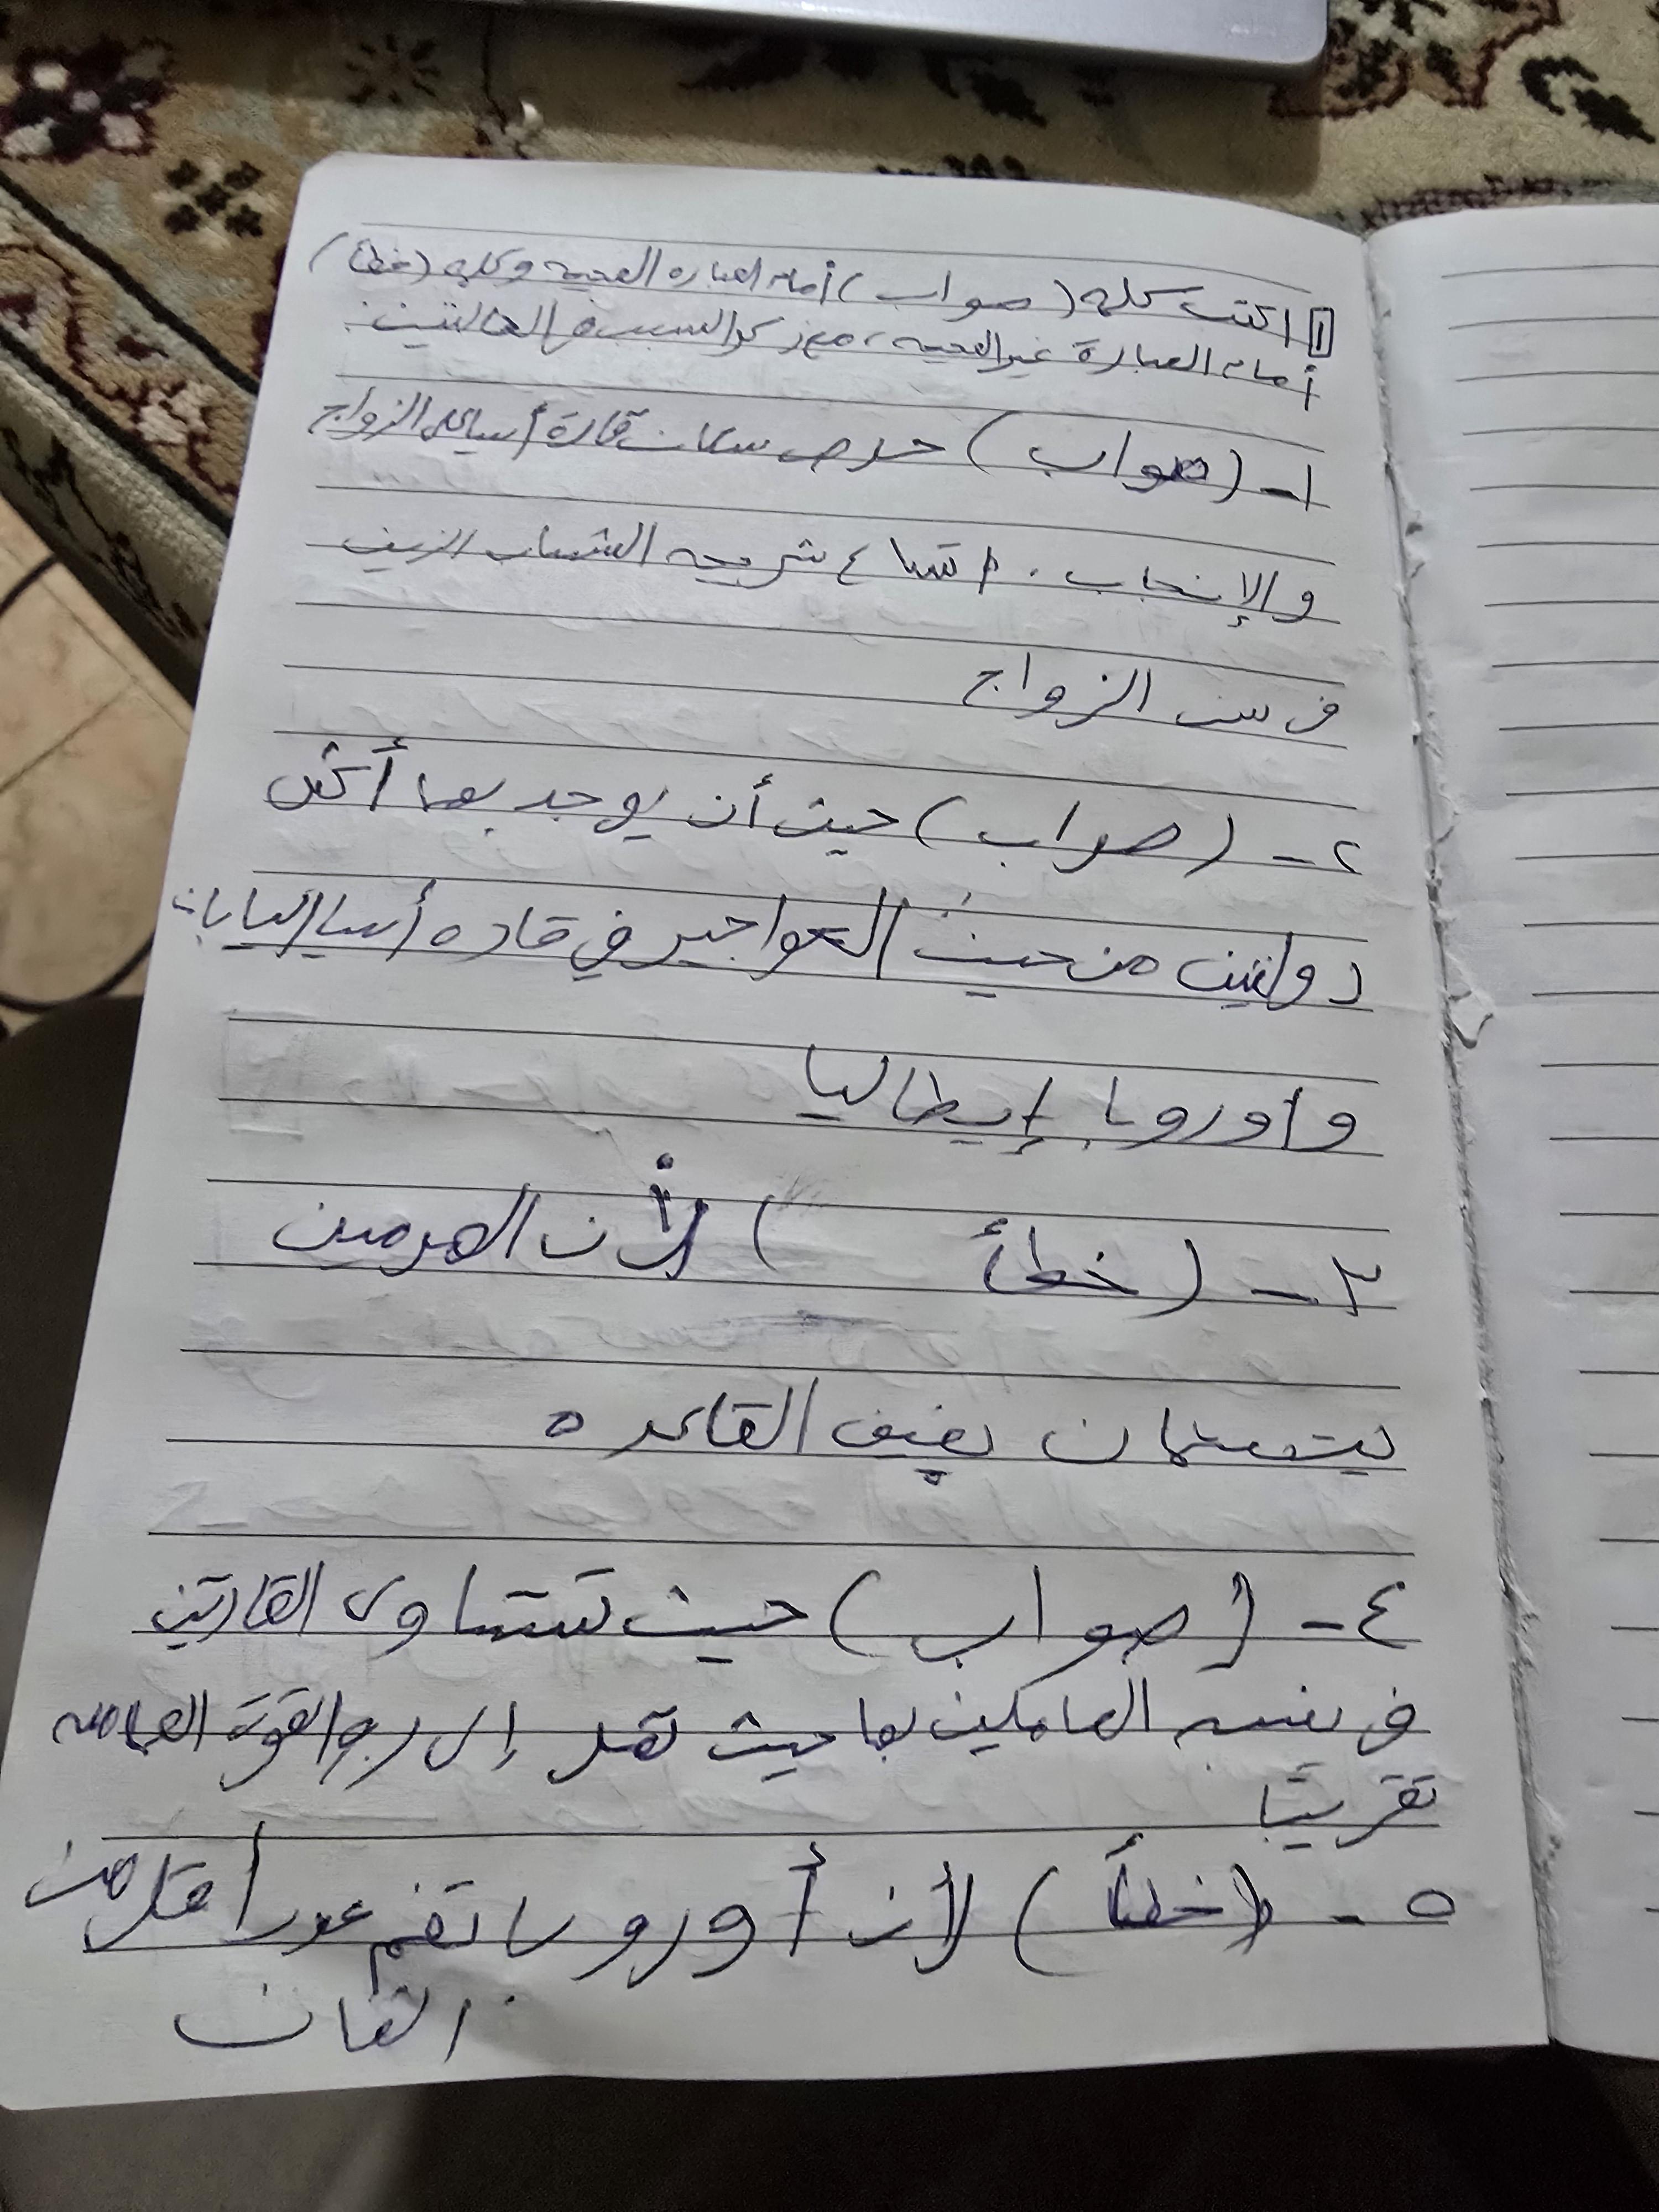 ١ اكتب كلمه (صواب) أمام العباره الصحيحه وكلمه (خطأ)
أمام العبارة غير الصحيحه، مع ذكر السبب في الحالتين:
١- (صواب) حرص سكان قارة أسيا على الزواج
والإنجاب. اتساع شريحه الشباب الزين
في سن الزواج
٢- (صواب) حيث أن يوجد بها أكثر
دولتين من حيث العواجيز في قاره أسيا اليابان
واوروبا إيطاليا
٣- (خطأ) لأن الهرمين
يتسمان بضيف القاعده
٤- (صواب) حيث تتساوى القارتين
في نسبه العاملين بها حيث تقد إلى ربع القوة العامله
تقريبًا
٥- (خطأ) لأن أوروبا تضم عدد أقل من